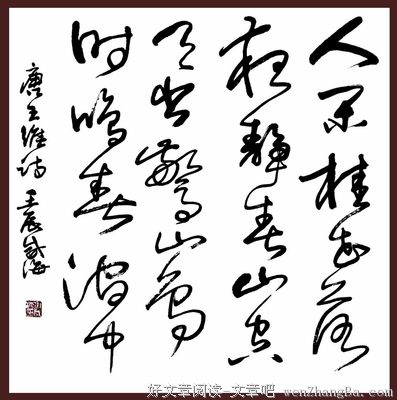 人閒桂花落
夜靜春山空
月出驚山鳥
時鳴春澗中
唐王維詩 壬辰
好文章阅读-文章吧 wenZhangBa.com